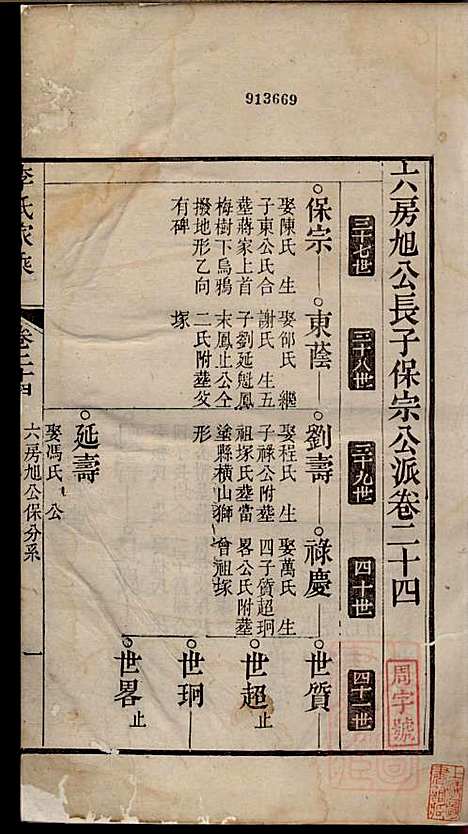 913669
六房旭公長子保宗公派卷二十四
三十七世
三十八世
三十九世
四十世
四十一世
周字號
保宗
娶陳氏 生
子東公氏合
塟蔣家上首
梅樹下烏鴉
撥地形乙向
有碑
東蔭
娶邵氏 繼
謝氏 生五
子劉延魁鳳
末鳳止公仝
二氏附塟父
塚
劉壽
娶程氏 生
子祿公附塟
祖塚氏塟當
塗縣橫山獅
形
祿慶
娶萬氏 生
四子質超珂
畧公氏附塟
曾祖塚
世質
世超止
世珂
世畧止
延壽
娶馮氏 公
六房旭公保分系
李氏家乘
卷二十四
一